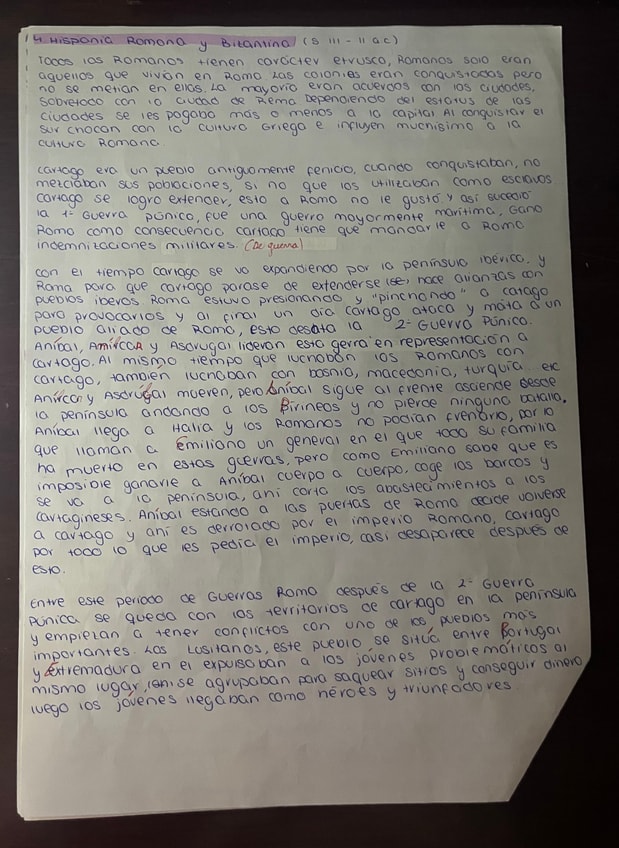 4. Hispania Romana y Bitantina (S III - II a.c)
Todos los Romanos tienen carácter etrusco, Romanos solo eran
aquellos que vivían en Roma. Las colonias eran conquistadas pero
no se metían en ellas. La mayoría eran acuerdos con las ciudades,
sobretodo con la ciudad de Rema Dependiendo del estatus de las
ciudades se les pagaba más o menos a la capital. Al conquistar el
sur chocan con la cultura Griega e influyen muchísimo a la
cultura Romana.
Cartago era un pueblo antiguamente fenicio, cuando conquistaban, no
mezclaban sus poblaciones, si no que los utilizaban como esclavos.
Cartago se logro extender, esto a Roma no le gustó, y así sucedió
la 1ª Guerra púnico, fue una guerra mayormente marítima, Ganó
Roma como consecuencia cartago tiene que mandarle a Roma
indemnizaciones militares. (De guerra)
Con el tiempo cartago se va expandiendo por la península ibérica, y
Roma para que cartago parase de extenderse hace alianzas con
pueblos iberos. Roma estuvo presionando y "pinchando" a catago
para provocarlos y al final un día cartago ataca y mata a un
pueblo aliado de Roma, esto desata la 2ª Guerra Púnica.
Aníbal, Amílcar y Asdrugal lideran esta gerra en representación a
cartago. Al mismo tiempo que luchaban los Romanos con
cartago, también luchaban con bosnia, macedonia, turquía... etc
Amílcar y Asdrúgal mueren, pero Aníbal sigue al frente asciende desde
la península andando a los Pirineos y no pierde ninguna batalla.
Aníbal llega a Italia y los Romanos no podían frenarlo, por lo
que llaman a Emiliano un general en el que toda su familia
ha muerto en estas guerras, pero como Emiliano sabe que es
imposible ganarle a Aníbal cuerpo a cuerpo, coge los barcos y
se va a la península, ahí corta los abastecimientos a los
cartagineses. Aníbal estando a las puertas de Roma decide volverse
a cartago y ahí es derrotado por el imperio Romano, cartago
por todo lo que les pedía el imperio, casi desaparece después de
esto.
Entre este periodo de Guerras Roma después de la 2ª Guerra
Púnica se queda con los territorios de cartago en la península
y empiezan a tener conflictos con uno de los pueblos más
importantes. Los Lusitanos, este pueblo se sitúa entre Portugal
y Extremadura en el expulsaban a los jóvenes problemáticos al
mismo lugar, ahí se agrupaban para saquear sitios y conseguir dinero
luego los jóvenes llegaban como héroes y triunfadores.